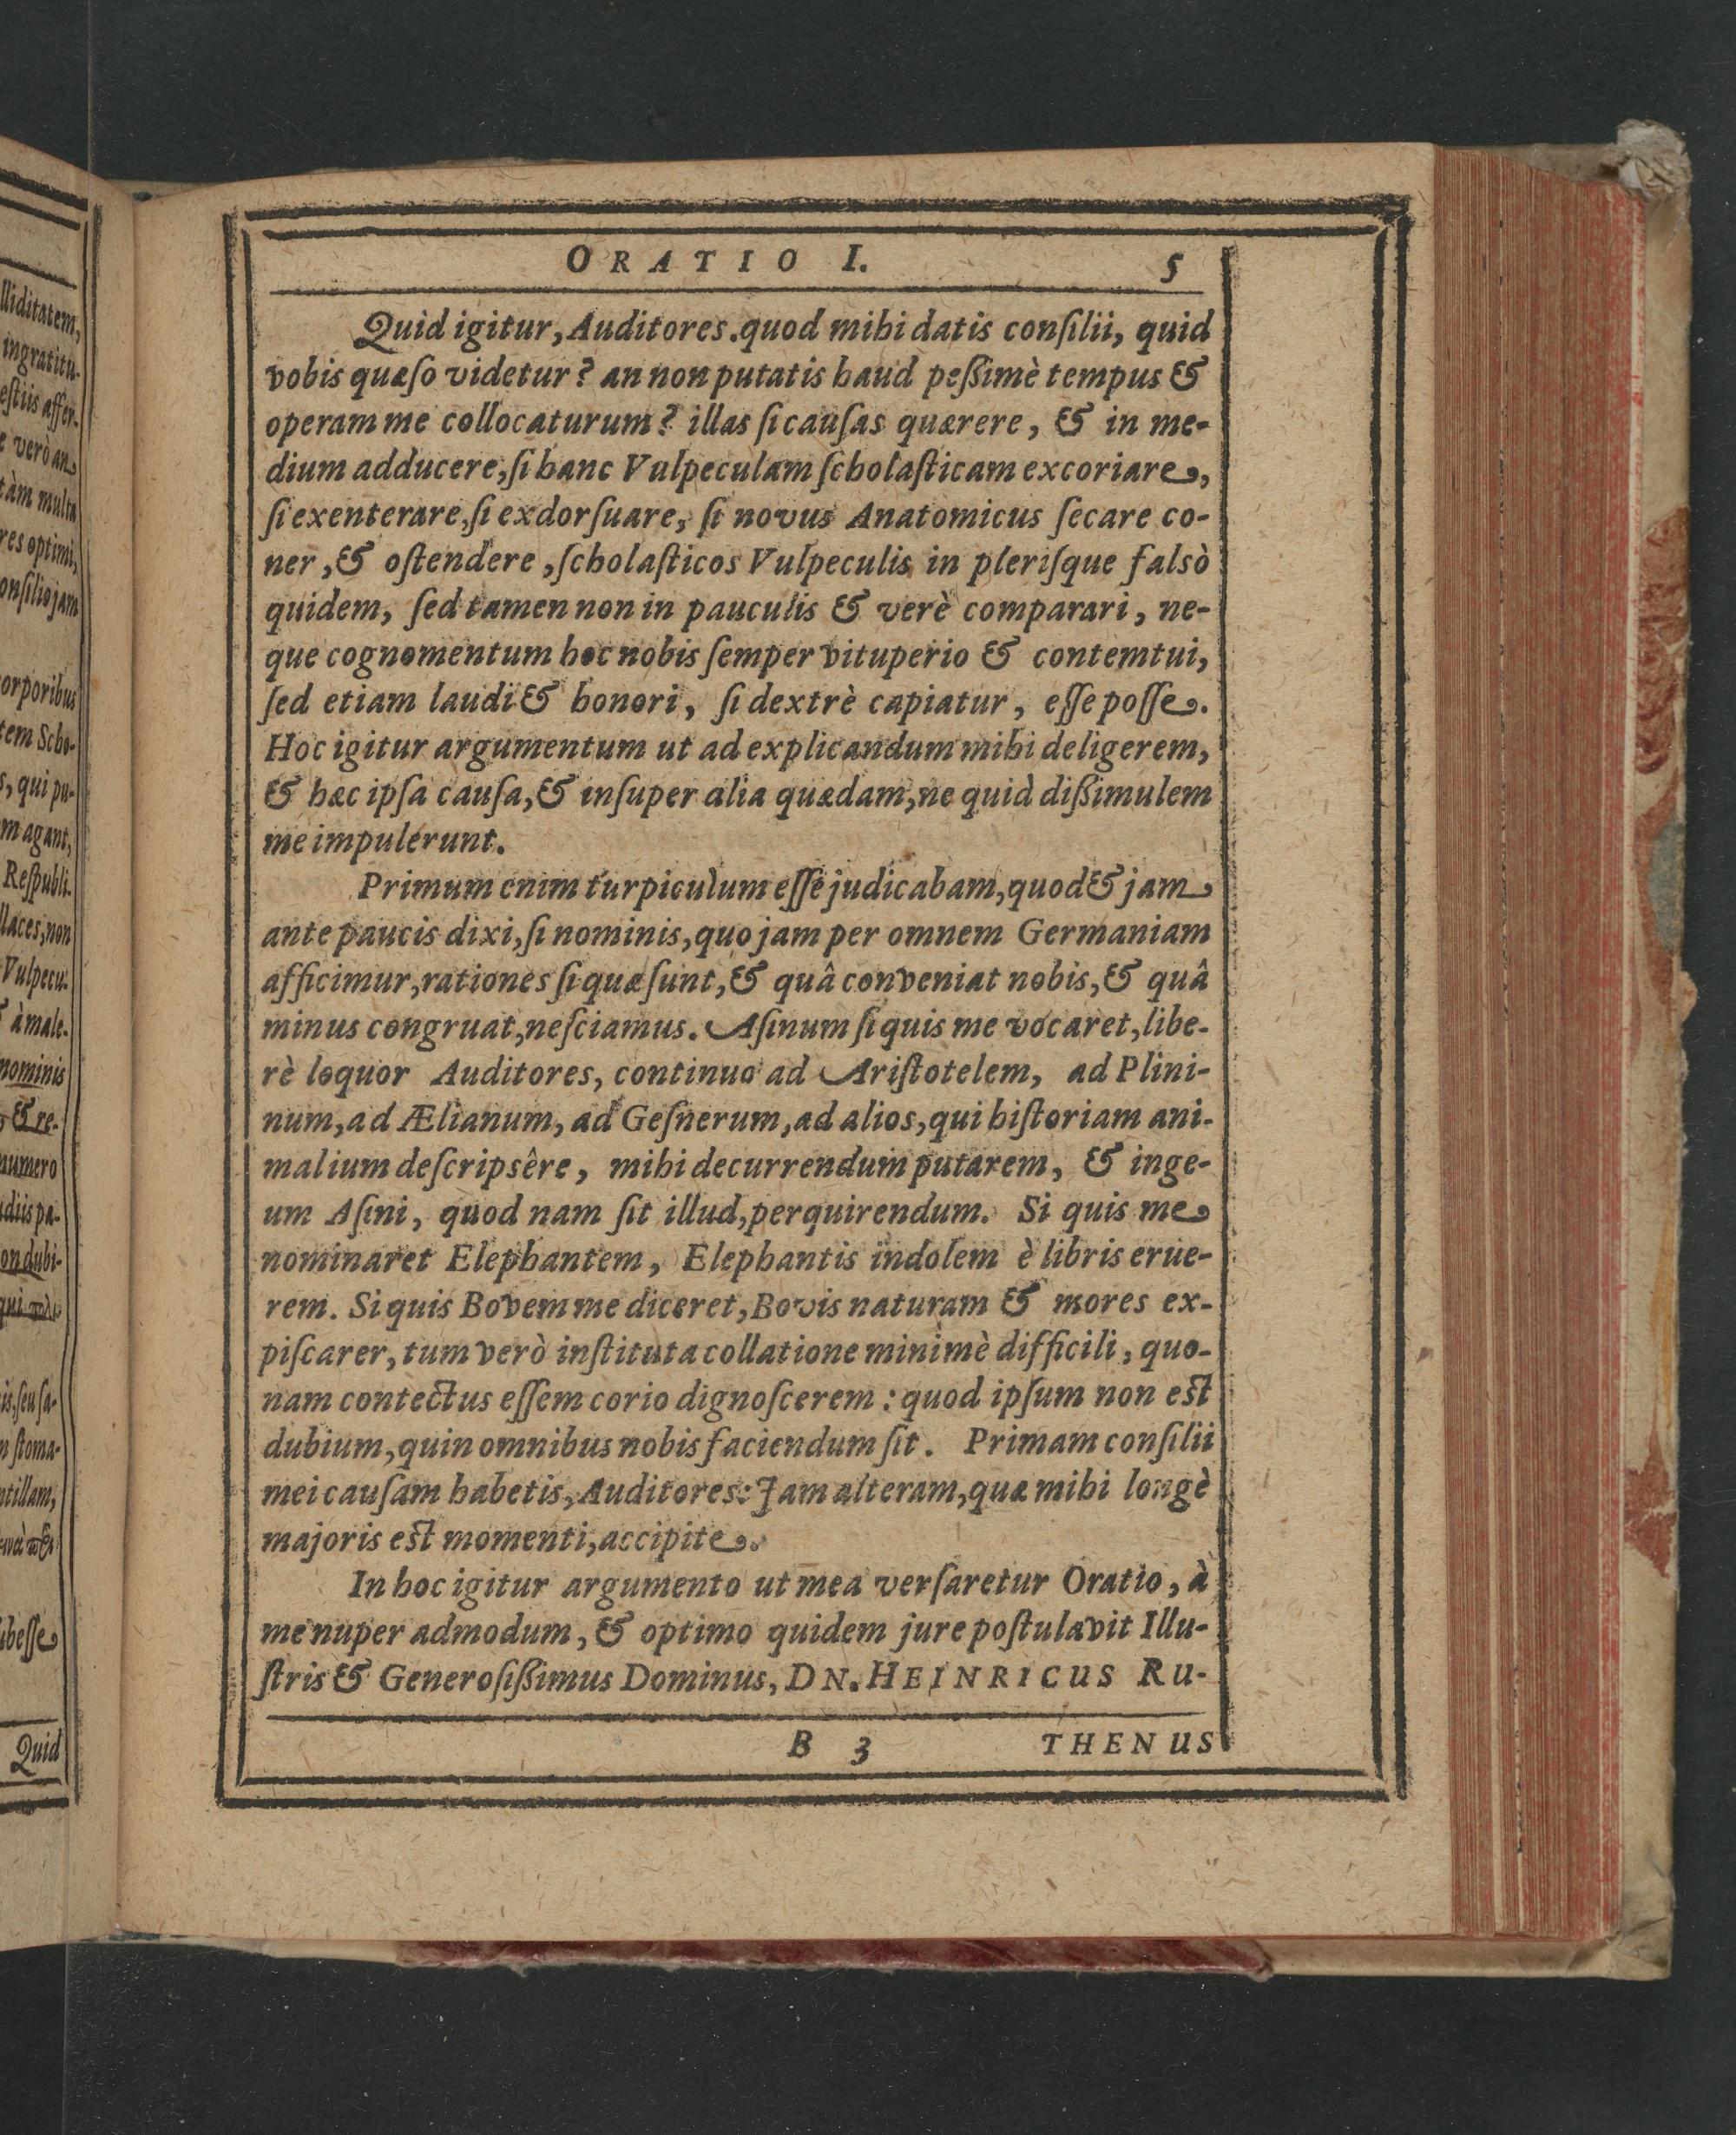 lliditatem,
ingratitu-
estiis affer-
verò an
tàm multa
res optimi,
onsilio jam
orporibus
tem Scho-
s, qui pu-
m agant,
Respubli-
llaces, non
Vulpecu-
à male-
nominis
& re-
numero
ondubi-
is, seu sa-
n stoma-
ntillam,
Quid
ORATIO I. 5
Quid igitur, Auditores. quod mihi datis consilii, quid
vobis quæso videtur? an non putatis haud pessimè tempus &
operam me collocaturum? illas si causas quærere, & in me-
dium adducere, si hanc Vulpeculam scholasticam excoriare,
si exenterare, si exdorsuare, si novus Anatomicus secare co-
ner, & ostendere, scholasticos Vulpeculis in plerisque falsò
quidem, sed tamen non in pauculis & verè comparari, ne-
que cognomentum hoc nobis semper vituperio & contemtui,
sed etiam laudi & honori, si dextrè capiatur, esse posse.
Hoc igitur argumentum ut ad explicandum mihi deligerem,
& hæc ipsa causa, & insuper alia quædam, ne quid dissimulem
me impulerunt.
Primum enim turpiculum esse judicabam, quod & jam
ante paucis dixi, si nominis, quo jam per omnem Germaniam
afficimur, rationes si quæ sunt, & quâ conveniat nobis, & quâ
minus congruat, nesciamus. Asinum si quis me vocaret, libe-
rè loquor Auditores, continuo ad Aristotelem, ad Plini-
num, ad Ælianum, ad Gesnerum, ad alios, qui historiam ani-
malium descripsêre, mihi decurrendum putarem, & inge-
um Asini, quod nam sit illud, perquirendum. Si quis me
nominaret Elephantem, Elephantis indolem è libris erue-
rem. Si quis Bovem me diceret, Bovis naturam & mores ex-
piscarer, tum verò instituta collatione minimè difficili, quo-
nam contectus essem corio dignoscerem: quod ipsum non est
dubium, quin omnibus nobis faciendum sit. Primam consilii
mei causam habetis, Auditores: Jam alteram, quæ mihi longè
majoris est momenti, accipite.
In hoc igitur argumento ut mea versaretur Oratio, à
me nuper admodum, & optimo quidem jure postulavit Illu-
stris & Generosissimus Dominus, DN. HEINRICUS RU-
B 3 THENUS